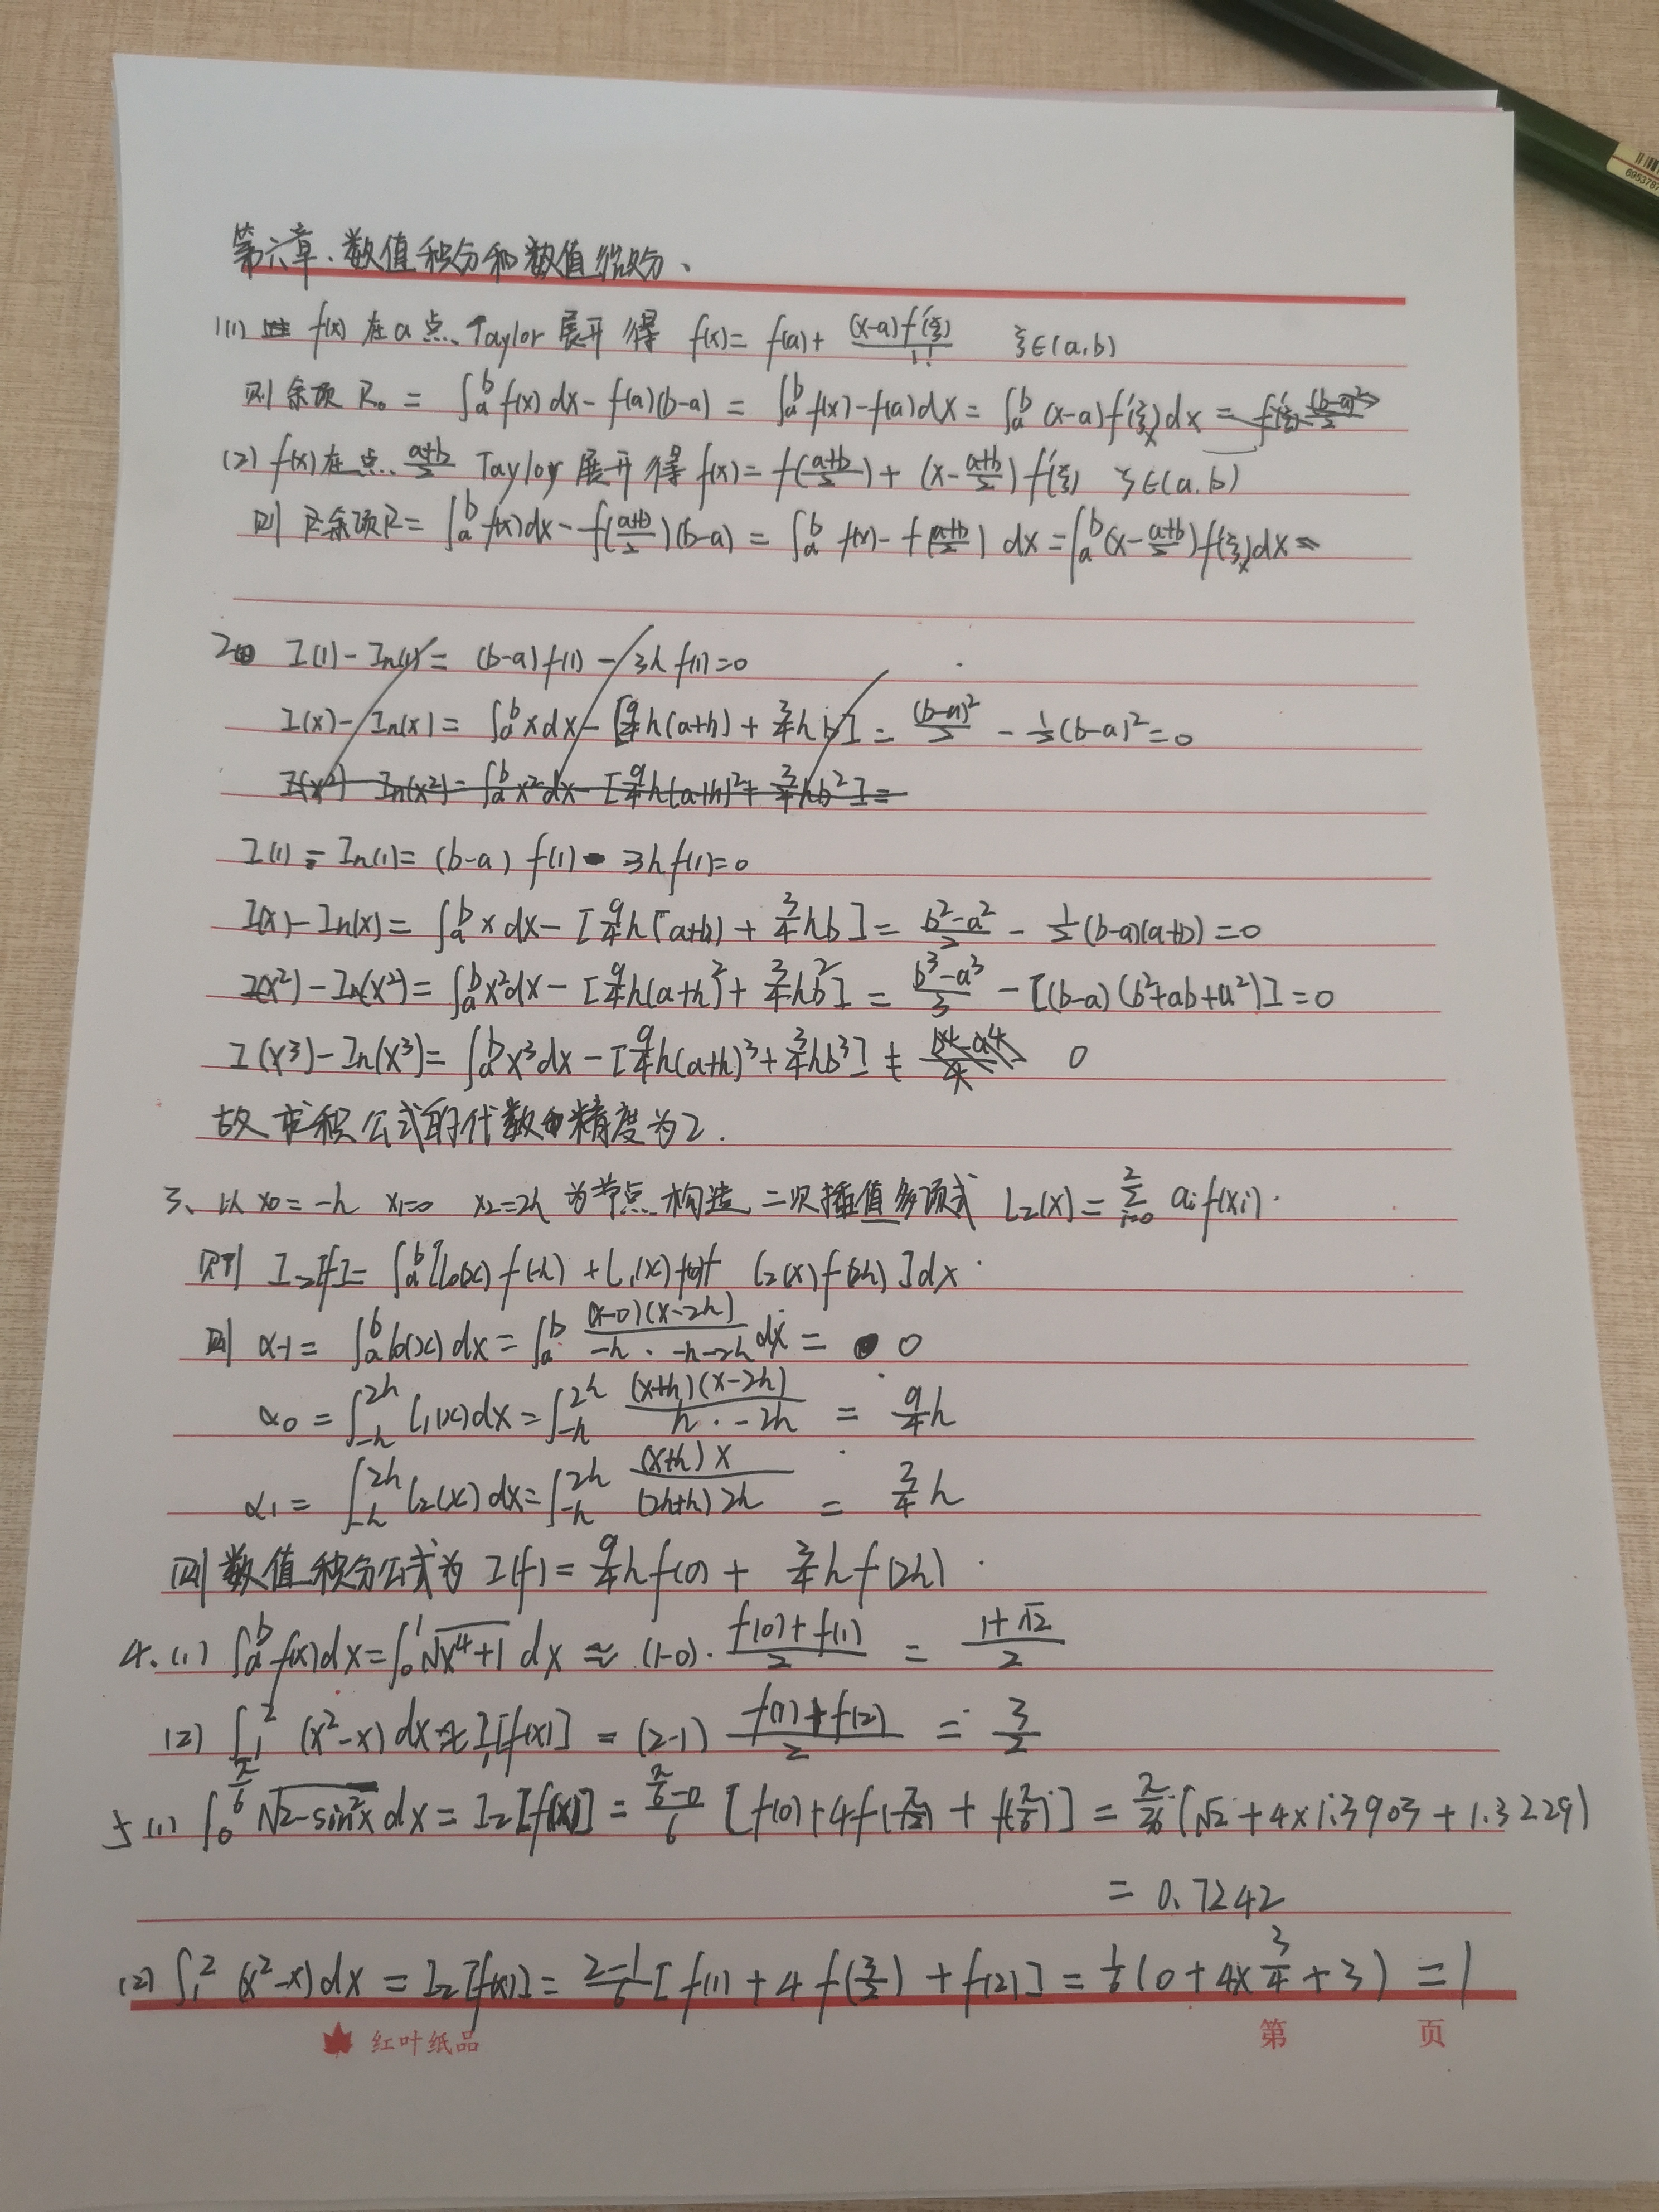 第六章、数值积分和数值微分、
1(1) f(x) 在a点、Taylor 展开得 f(x)= f(a)+ (x-a)f'(ξ)/1! ξ∈(a,b)
则余项 R₀ = ∫ₐᵇ f(x) dx - f(a)(b-a) = ∫ₐᵇ f(x)-f(a)dx = ∫ₐᵇ (x-a)f'(ξₓ)dx = f'(ξ)(b-a)²/2
(2) f(x)在点 (a+b)/2 Taylor 展开得 f(x)= f((a+b)/2) + (x-(a+b)/2) f'(ξ) ξ∈(a,b)
则 余项R = ∫ₐᵇ f(x)dx - f((a+b)/2)(b-a) = ∫ₐᵇ f(x)-f((a+b)/2) dx = ∫ₐᵇ(x-(a+b)/2)f'(ξₓ)dx =
2 I(1)-In(1) = (b-a)f(1) - 3hf(1)=0
I(x)-In(x) = ∫ₐᵇ xdx - [9/4h(a+h) + 3/4hb] = (b-a)²/2 - 1/2(b-a)²=0
I(x²)-In(x²) = ∫ₐᵇ x²dx - [9/4h(a+h)²+ 3/4hb²] =
I(1) - In(1)= (b-a) f(1) - 3hf(1)=0
I(x)-In(x) = ∫ₐᵇ x dx - [9/4h(a+h) + 3/4hb] = (b²-a²)/2 - 1/2(b-a)(a+b)=0
I(x²)-In(x²) = ∫ₐᵇ x²dx - [9/4h(a+h)²+ 3/4hb²] = (b³-a³)/3 - [(b-a)(b²+ab+a²)]=0
I(x³)-In(x³) = ∫ₐᵇ x³dx - [9/4h(a+h)³+3/4hb³] ≠ 0
故求积公式的代数精度为2.
3、以 x₀=-h x₁=0 x₂=2h 为节点构造二次插值多项式 L₂(x) = Σᵢ₌₀² aᵢf(xᵢ).
则 I₂[f]= ∫ₐᵇ[l₀(x) f(-h) + l₁(x)f(0)+ l₂(x)f(2h)]dx.
则 α₋₁ = ∫ₐᵇ l₀(x) dx = ∫ₐᵇ (x-0)(x-2h)/(-h·-h-2h) dx = 0
α₀ = ∫₋ₕ²ʰ l₁(x)dx = ∫₋ₕ²ʰ (x+h)(x-2h)/(h·-2h) = 9/4h
α₁ = ∫₋ₕ²ʰ l₂(x)dx = ∫₋ₕ²ʰ (x+h)x/((2h+h)2h) = 3/4h
则数值积分公式为 I(f)= 9/4hf(0)+ 3/4hf(2h).
4.(1) ∫ₐᵇ f(x)dx=∫₀¹√(x⁴+1) dx ≈ (1-0)·(f(0)+f(1))/2 = (1+√2)/2
(2) ∫₁² (x²-x)dx ≈ I₁[f(x)] = (2-1) (f(1)+f(2))/2 = 3/2
5(1) ∫₀^(π/6) √(2-sin²x) dx = I₂[f(x)] = (π/6-0)/6 [f(0)+4f(π/12) + f(π/6)] = π/36(√2+4×1.3903+1.3229)
= 0.7242
(2) ∫₁² (x²-x)dx = I₂[f(x)] = (2-1)/6[f(1)+4f(3/2)+f(2)] = 1/6(0+4×3/4+3) =1
红叶纸品 第 页